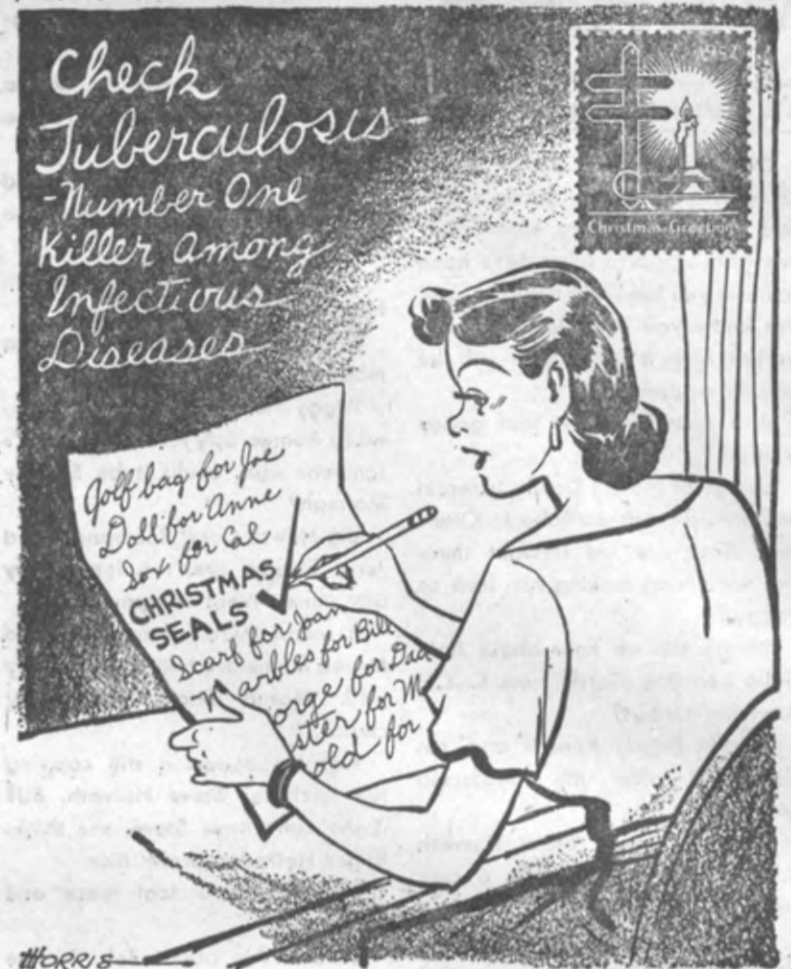 Check
Tuberculosis-
-Number One
Killer among
Infectious
Diseases
1952
Christmas Greetings
Golf bag for Joe
Doll for Anne
Sox for Cal
CHRISTMAS
SEALS
Scarf for Joan
Marbles for Bill
orge for Dad
ster for M
old for
MORRIS